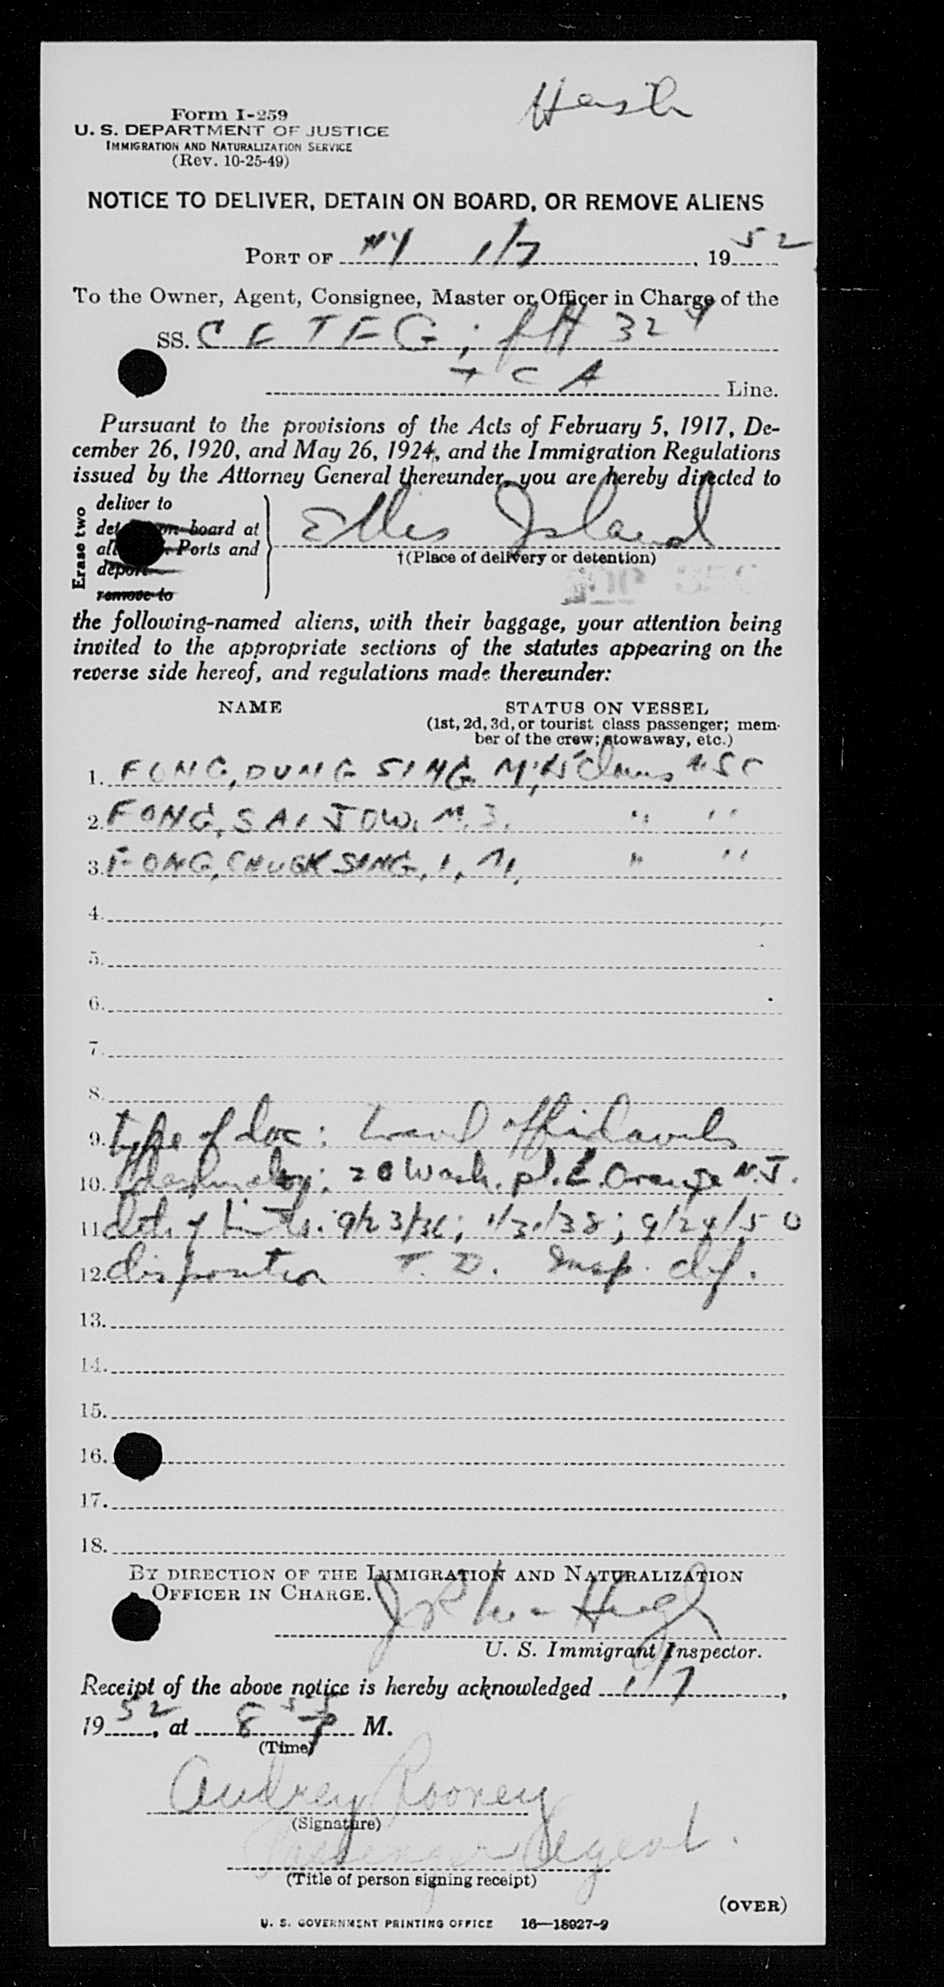 Form I-259
U. S. DEPARTMENT OF JUSTICE
IMMIGRATION AND NATURALIZATION SERVICE
(Rev. 10-25-49)
NOTICE TO DELIVER, DETAIN ON BOARD, OR REMOVE ALIENS
PORT OF NY 1/7, 1952
To the Owner, Agent, Consignee, Master or Officer in Charge of the
SS. CF TFG; flt 324
TCA Line.
Pursuant to the provisions of the Acts of February 5, 1917, De-
cember 26, 1920, and May 26, 1924, and the Immigration Regulations
issued by the Attorney General thereunder, you are hereby directed to
Erase two
deliver to
board at
Ports and
deport
remove to
Ellis Island
†(Place of delivery or detention)
the following-named aliens, with their baggage, your attention being
invited to the appropriate sections of the statutes appearing on the
reverse side hereof, and regulations made thereunder:
NAME
STATUS ON VESSEL
(1st, 2d, 3d, or tourist class passenger; mem-
ber of the crew; stowaway, etc.)
1. FONG, DUNG SING, Claims USC
2. FONG, SAI JOW, M. 3. " "
3. FONG, CHUCK SING, " "
4.
5.
6.
7.
8.
9. type of doc: travel affidavits
10. 20 Wash. pl. E. Orange N.J.
11. 9/23/36; 1/31/38; 9/24/50
12. disposition T. D. Insp.
13.
14.
15.
16.
17.
18.
BY DIRECTION OF THE IMMIGRATION AND NATURALIZATION
OFFICER IN CHARGE.
U. S. Immigrant Inspector.
Receipt of the above notice is hereby acknowledged 1/7,
1952, at 8 55 P M.
(Time)
Audrey Rooney
(Signature)
Passenger Agent.
(Title of person signing receipt)
(OVER)
U. S. GOVERNMENT PRINTING OFFICE 16—18927-9